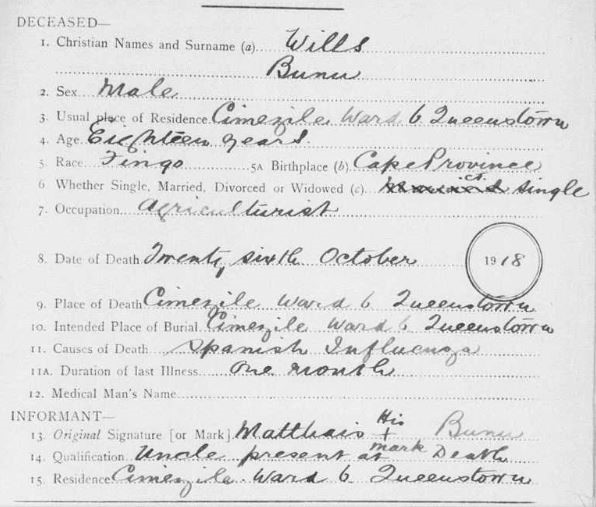 DECEASED—
1. Christian Names and Surname (a) Wills
Bunu
2. Sex Male
3. Usual place of Residence Cimezile Ward 6 Queenstown
4. Age Eighteen years.
5. Race Fingo 5A Birthplace (b) Cape Province
6 Whether Single, Married, Divorced or Widowed (c) single
7. Occupation Agriculturist
8. Date of Death Twenty sixth October 1918
9. Place of Death Cimezile Ward 6 Queenstown
10. Intended Place of Burial Cimezile Ward 6 Queenstown
11. Causes of Death Spanish Influenza
11A. Duration of last Illness One month
12. Medical Man's Name
INFORMANT—
13. Original Signature [or Mark] Matthais His + mark Bunu
14. Qualification Uncle present at Death
15. Residence Cimezile Ward 6 Queenstown